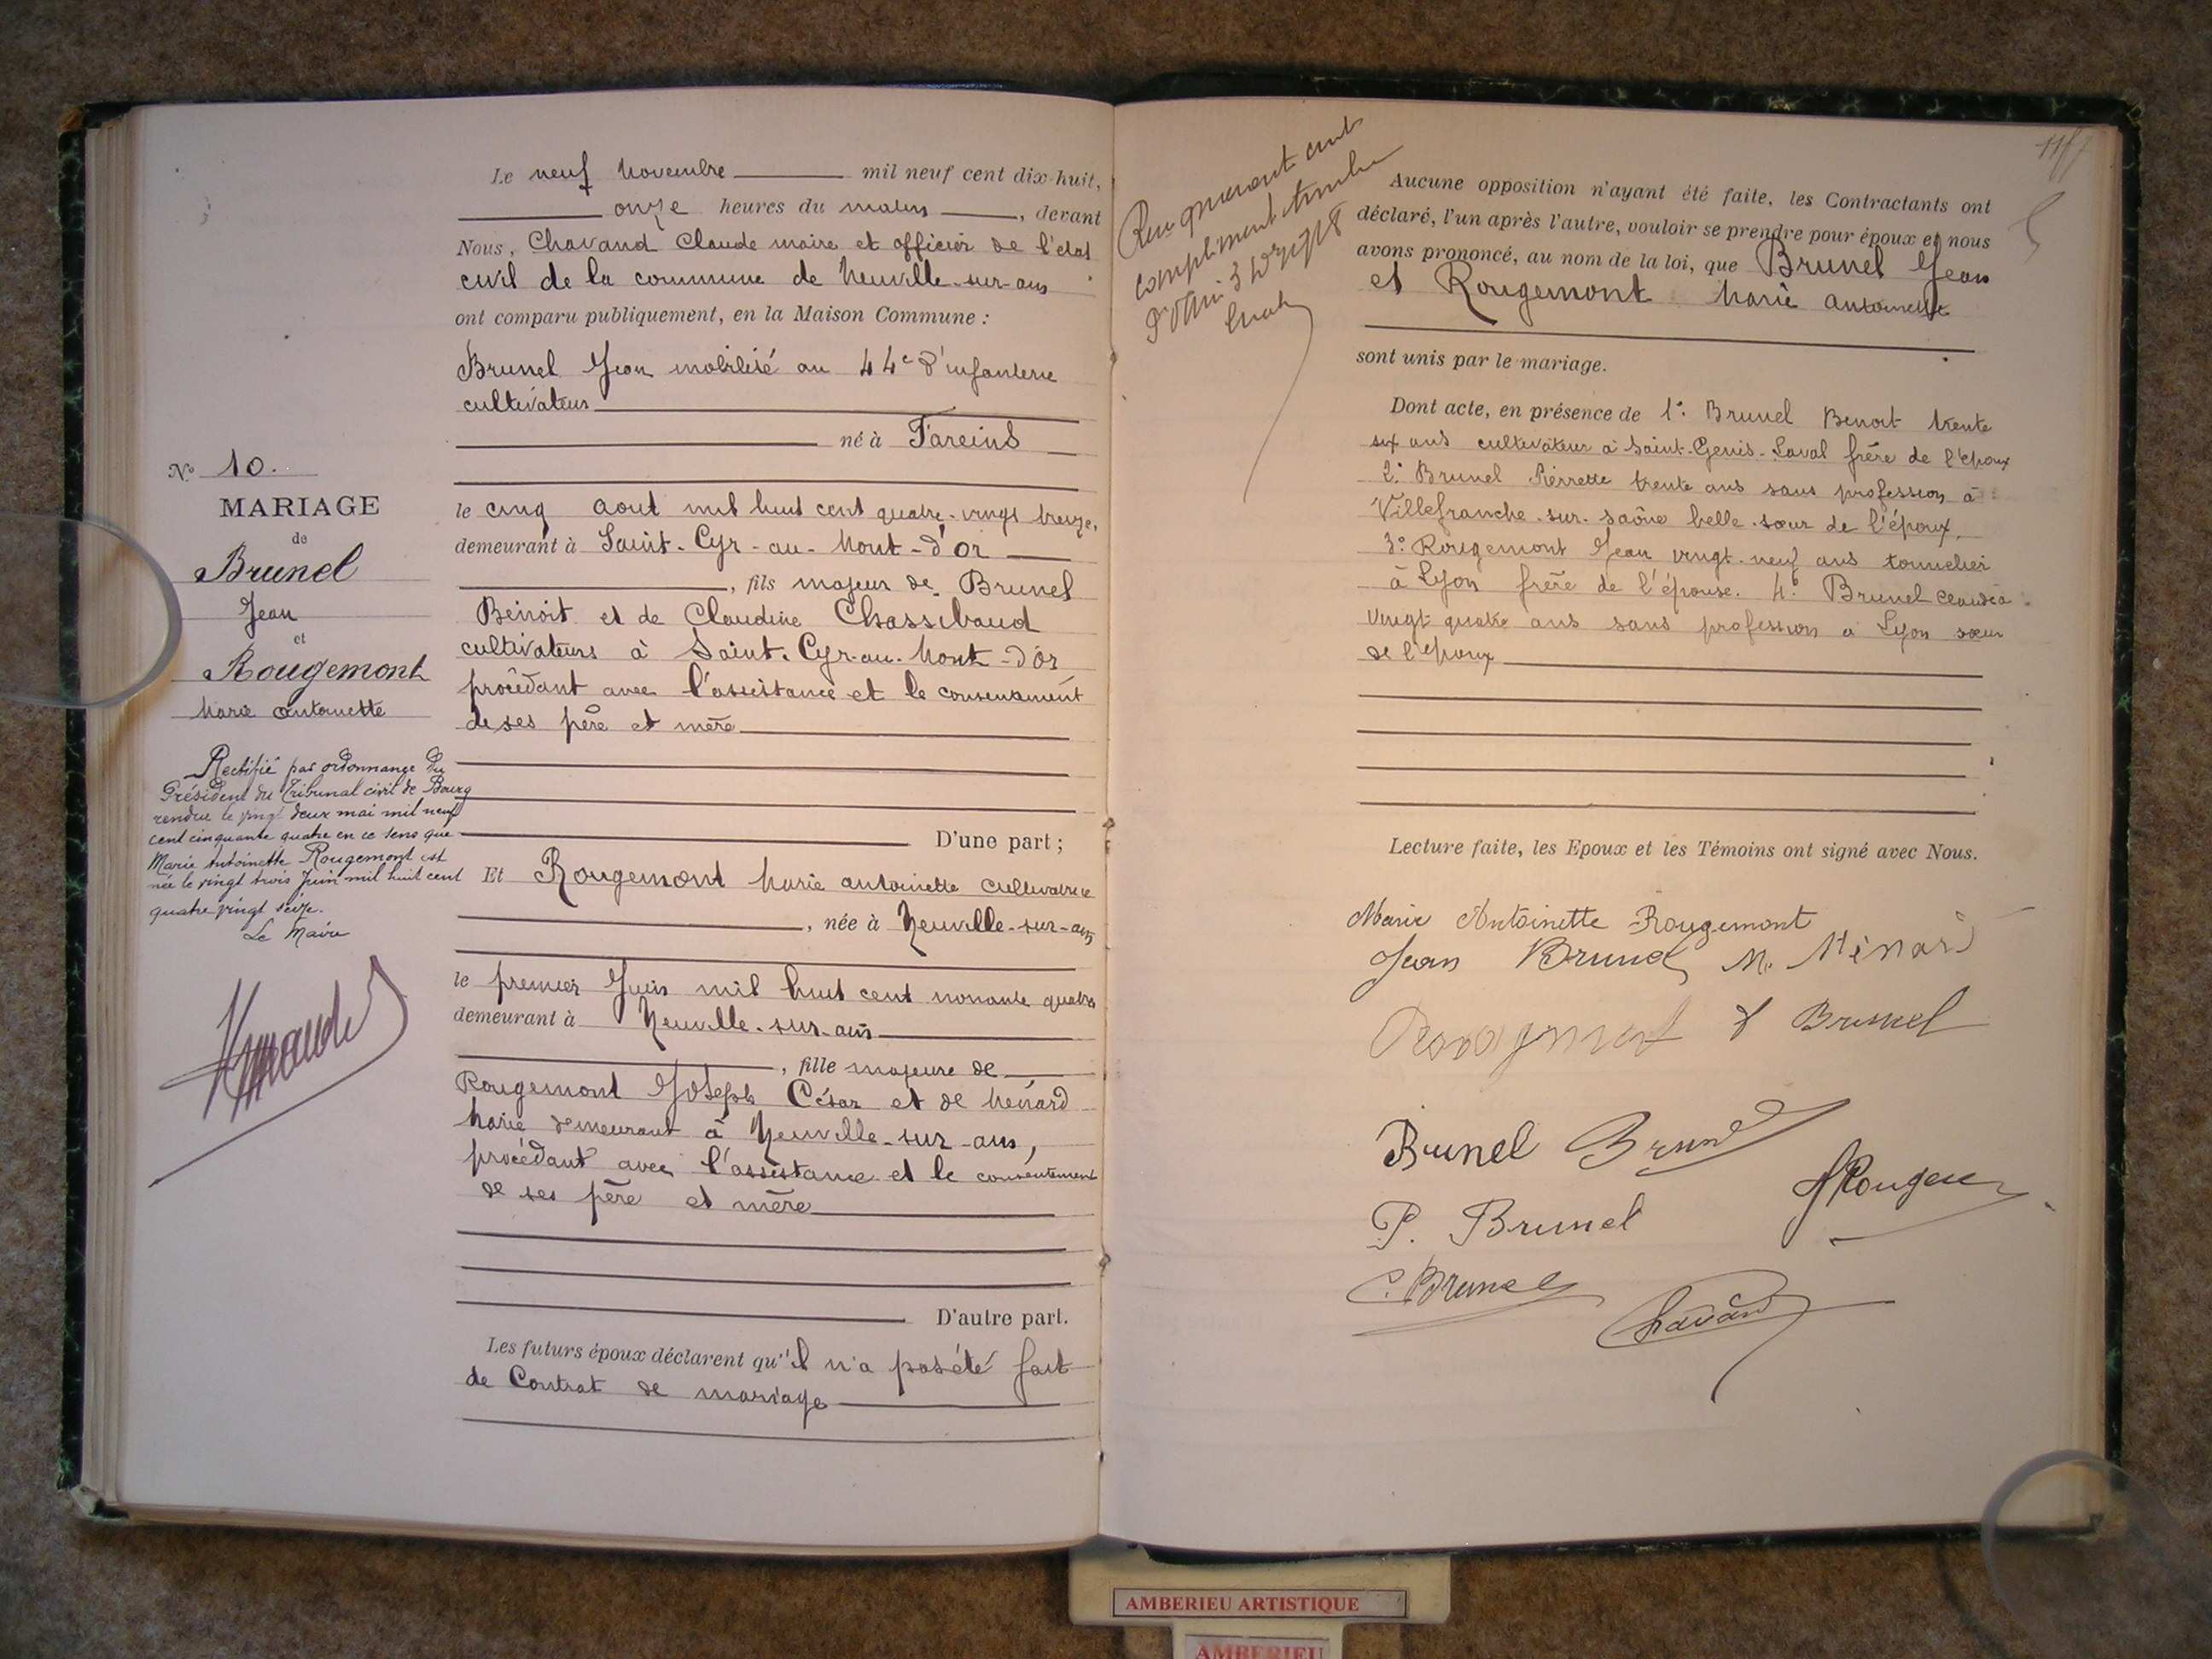 Le neuf Novembre mil neuf cent dix-huit,
onze heures du matin, devant
Nous, Chavand Claude maire et officier de l'état
civil de la commune de Neuville-sur-ain
ont comparu publiquement, en la Maison Commune :
Brunel Jean mobilisé au 44e d'infanterie
cultivateur
né à Fareins
le cinq aout mil huit cent quatre-vingt treize,
demeurant à Saint-Cyr-au-Mont-d'or
, fils majeur de Brunel
Benoit et de Claudine Chassibaud
cultivateurs à Saint-Cyr-au-Mont-d'or
procédant avec l'assistance et le consentement
de ses père et mère
D'une part ;
Et Rougemont Marie antoinette cultivatrice
, née à Neuville-sur-ain
le premier Juin mil huit cent nonante quatre
demeurant à Neuville-sur-ain
, fille majeure de
Rougemont Joseph César et de Ménard
Marie demeurant à Neuville-sur-ain,
procédant avec l'assistance et le consentement
de ses père et mère
D'autre part.
Les futurs époux déclarent qu'il n'a pas été fait
de Contrat de mariage
No 10.
MARIAGE
de
Brunel
Jean
et
Rougemont
Marie antoinette
Rectifié par ordonnance du
Président du Tribunal civil de Bourg
rendue le vingt deux mai mil neuf
cent cinquante quatre en ce sens que
Marie Antoinette Rougemont est
née le vingt trois Juin mil huit cent
quatre vingt seize.
Le Maire
Aucune opposition n'ayant été faite, les Contractants ont
déclaré, l'un après l'autre, vouloir se prendre pour époux et nous
avons prononcé, au nom de la loi, que Brunel Jean
et Rougemont Marie antoinette
sont unis par le mariage.
Dont acte, en présence de 1° Brunel Benoit trente
six ans cultivateur à Saint-Genis-Laval frère de l'époux
2° Brunel Pierrette trente ans sans profession à
Villefranche-sur-saône belle-sœur de l'époux
3° Rougemont Jean vingt-neuf ans tonnelier
à Lyon frère de l'épouse. 4° Brunel Claudia
vingt quatre ans sans profession à Lyon sœur
de l'époux
Lecture faite, les Epoux et les Témoins ont signé avec Nous.
Marie Antoinette Rougemont
Jean Brunel M. Ménard
Brunel
Brunel Brunel
P. Brunel
C. Brunel
Chavand
AMBERIEU ARTISTIQUE
AMBERIEU